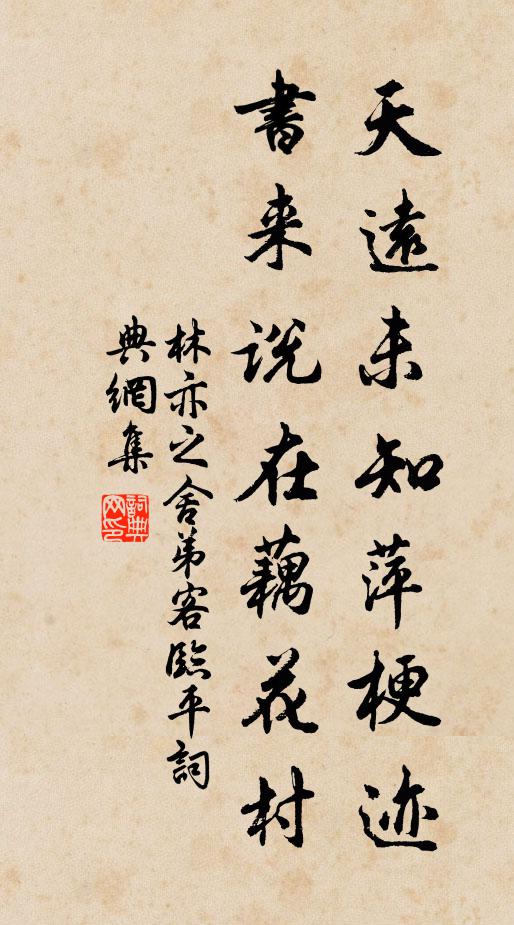 天遠未知萍梗迹
書来説在藕花村
林亦之舍弟客臨平詞
典網集
詞典網印